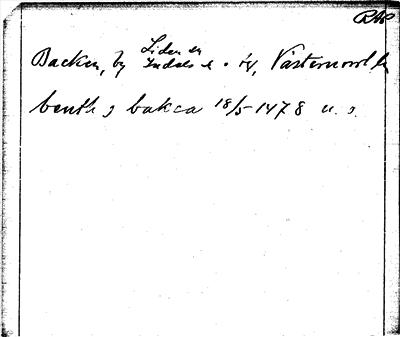 RAP
Liden sn
Backen, by Indals t., Västernorrl. län
benth j bakca 18/5-1478 u. s.